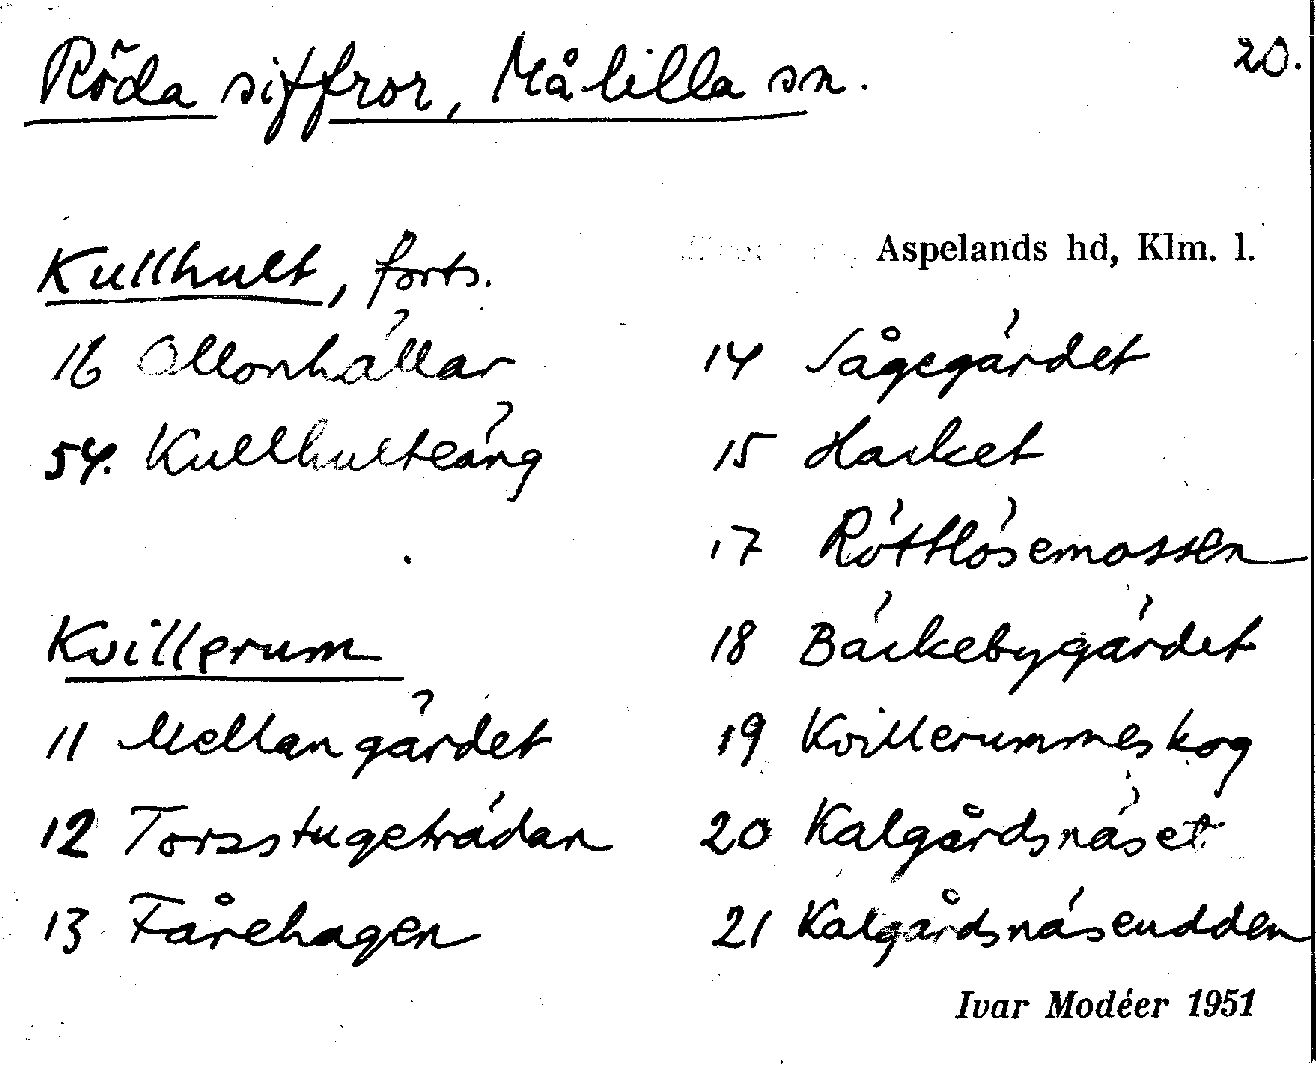 Röda siffror, Målilla sn.
20.
Aspelands hd, Klm. l.
Kullhult, forts.
16 Ollonhällar
54. Kullhulteäng
Kvillerum
11 Mellangärdet
12 Torsstugeträdan
13 Fårehagen
14 Sågegärdet
15 Hacket
17 Röttlösemossen
18 Bäckebygärdet
19 Kvillerummeskog
20 Kalgårdsnäset
21 Kalgårdsnäsudden
Ivar Modéer 1951